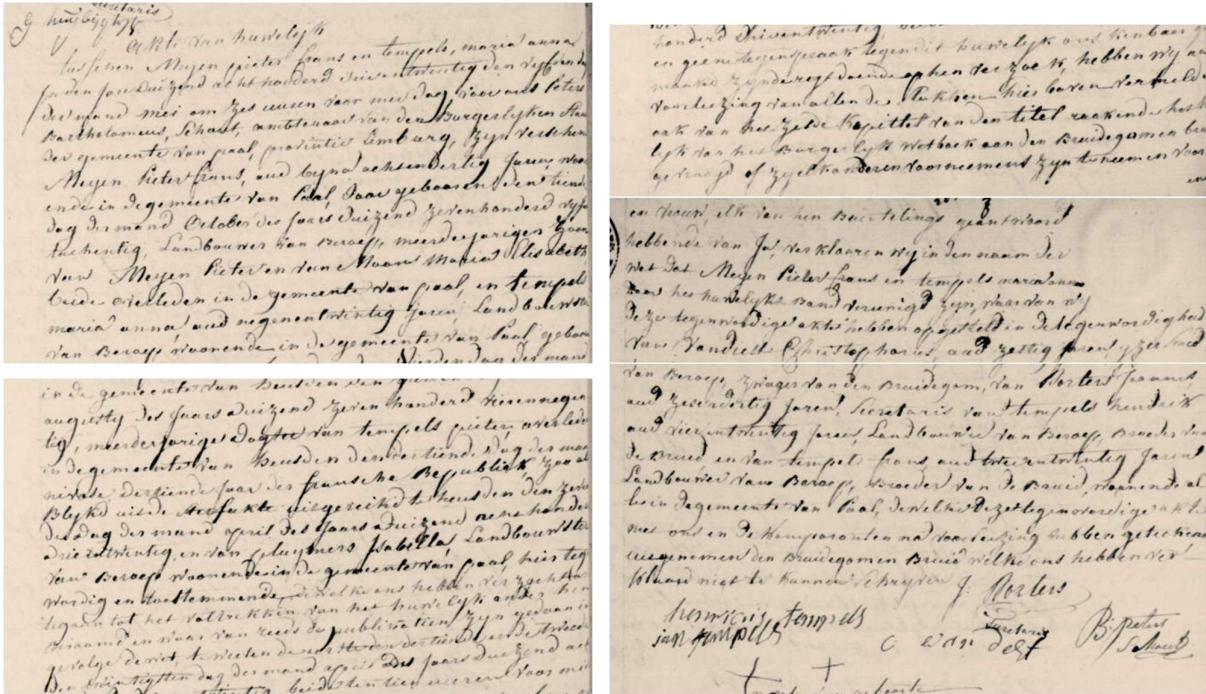 secretaris
9 huijbijgtyk
Akte van huwelijk
tusschen Meyen pieter frans en tempels, maria anna
In den Jare Duizend acht honderd drieentwintig den vijfden dag
der mand mei om zes uuren voor mid dag, voor ons Peters
Bartholomeus, Schout, ambtenaar van den Burgerlyken Stan
der gemeente van paal, provintie Limburg, zyn verschen
Meyen Pieter frans, oud byna achtendertig Jaren woo
ende in de gemeente van Paal, Daar geboren den tiende
dag der mand October des Jaars Duizend zevenhonderd vyf
tachentig, Landbouwer van Beroep, meerderjarigen Zoon
van Meyen Pieter en van Maria Elisabeth
beide overleden in de gemeente van paal, en tempels
maria anna oud negenentwintig Jaren, Landbouwster
van Beroep woonende in de gemeente van Paal gebore
in de gemeente van heusden den
augusty des Jaars Duizend zeven honderd vierennegen
tig, meerderjarige Dogter van tempels pieter, overlede
in de gemeente van heusden den dertiende dag der mand
nivose dertiende Jaar der fransche Republiek zoo al
Blykt uit de Akte uitgereikt te heusden den zeve
den dag der mand april des Jaars Duizend acht honder
drieentwintig, en van pluymers Isabella, Landbouwster
van Beroep woonende in de gemeente van paal, hier teg
wordig en toestemmende, de welke ons hebben verzocht
te gaan tot het voltrekken van het huwelyk onder hen
Beraamd en waar van reeds de publicatien zyn gedaan in
gevolge de wet, te weeten de eerste den dertiende en de twee
den twintigsten dag der mand april des Jaars Duizend ach
honderd drieentwintig,
en geene tegenspraak tegen dit huwelyk ons kenbaar ge
maakt zynde regt doende op hun verzoek, hebben wy na
voorleezing van alle de stukken hier boven vermeld
ook van het zesde Kapittel van den titel raakende het h
lyk van het Burgerlyk wetboek aan den Bruidegom en bru
gevraagd of zy elkanderen voorneemens zyn te neemen voor
en vrouw, elk van hen Beurtelings geantwoord
hebbende van Ja, verklaaren wy in den naam der
wet dat Meyen Pieter frans en tempels maria anna
door het huwelyks band vereenigd zyn, waar van wy
deze tegenwoordige akte hebben opgesteld in de tegenwoordigheid
van Vandiest Christophorus, oud zestig Jaren,
van Beroep, zwager van den Bruidegom, van Morters francis
oud zesendertig Jaren, Secretaris van tempels hendrik
oud vierentwintig Jaren, Landbouwer van Beroep, Broeder van
de Bruid en van tempels frans, oud tweeentwintig Jaren
Landbouwer van Beroep, Broeder van de Bruid, woonende al
le in de gemeente van Paal, de welke deze tegenwoordige akte
met ons en de Komparanten na voorleezing hebben geteekend
uitgenomen den Bruidegom en Bruid welke ons hebben ver
klaard niet te kunnen schryven J. Morters
secretaris
henricis tempels
jan tempels
C van delft
B. Peters
Schout